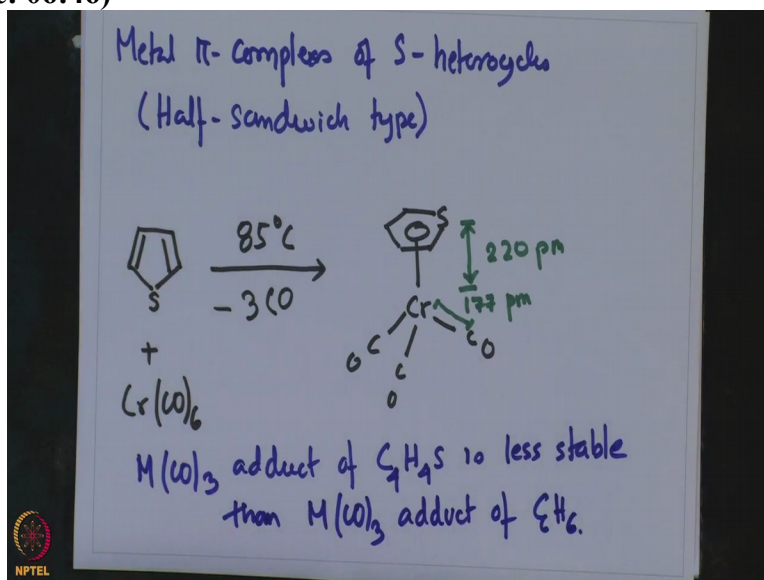 Metal π-Complexes of S-heterocycles
(Half-Sandwich type)
85°C
- 3CO
S
+
Cr(CO)6
S
220 pm
177 pm
Cr
C O
C O
C O
M(CO)3 adduct of C4H4S is less stable
than M(CO)3 adduct of C6H6.
NPTEL